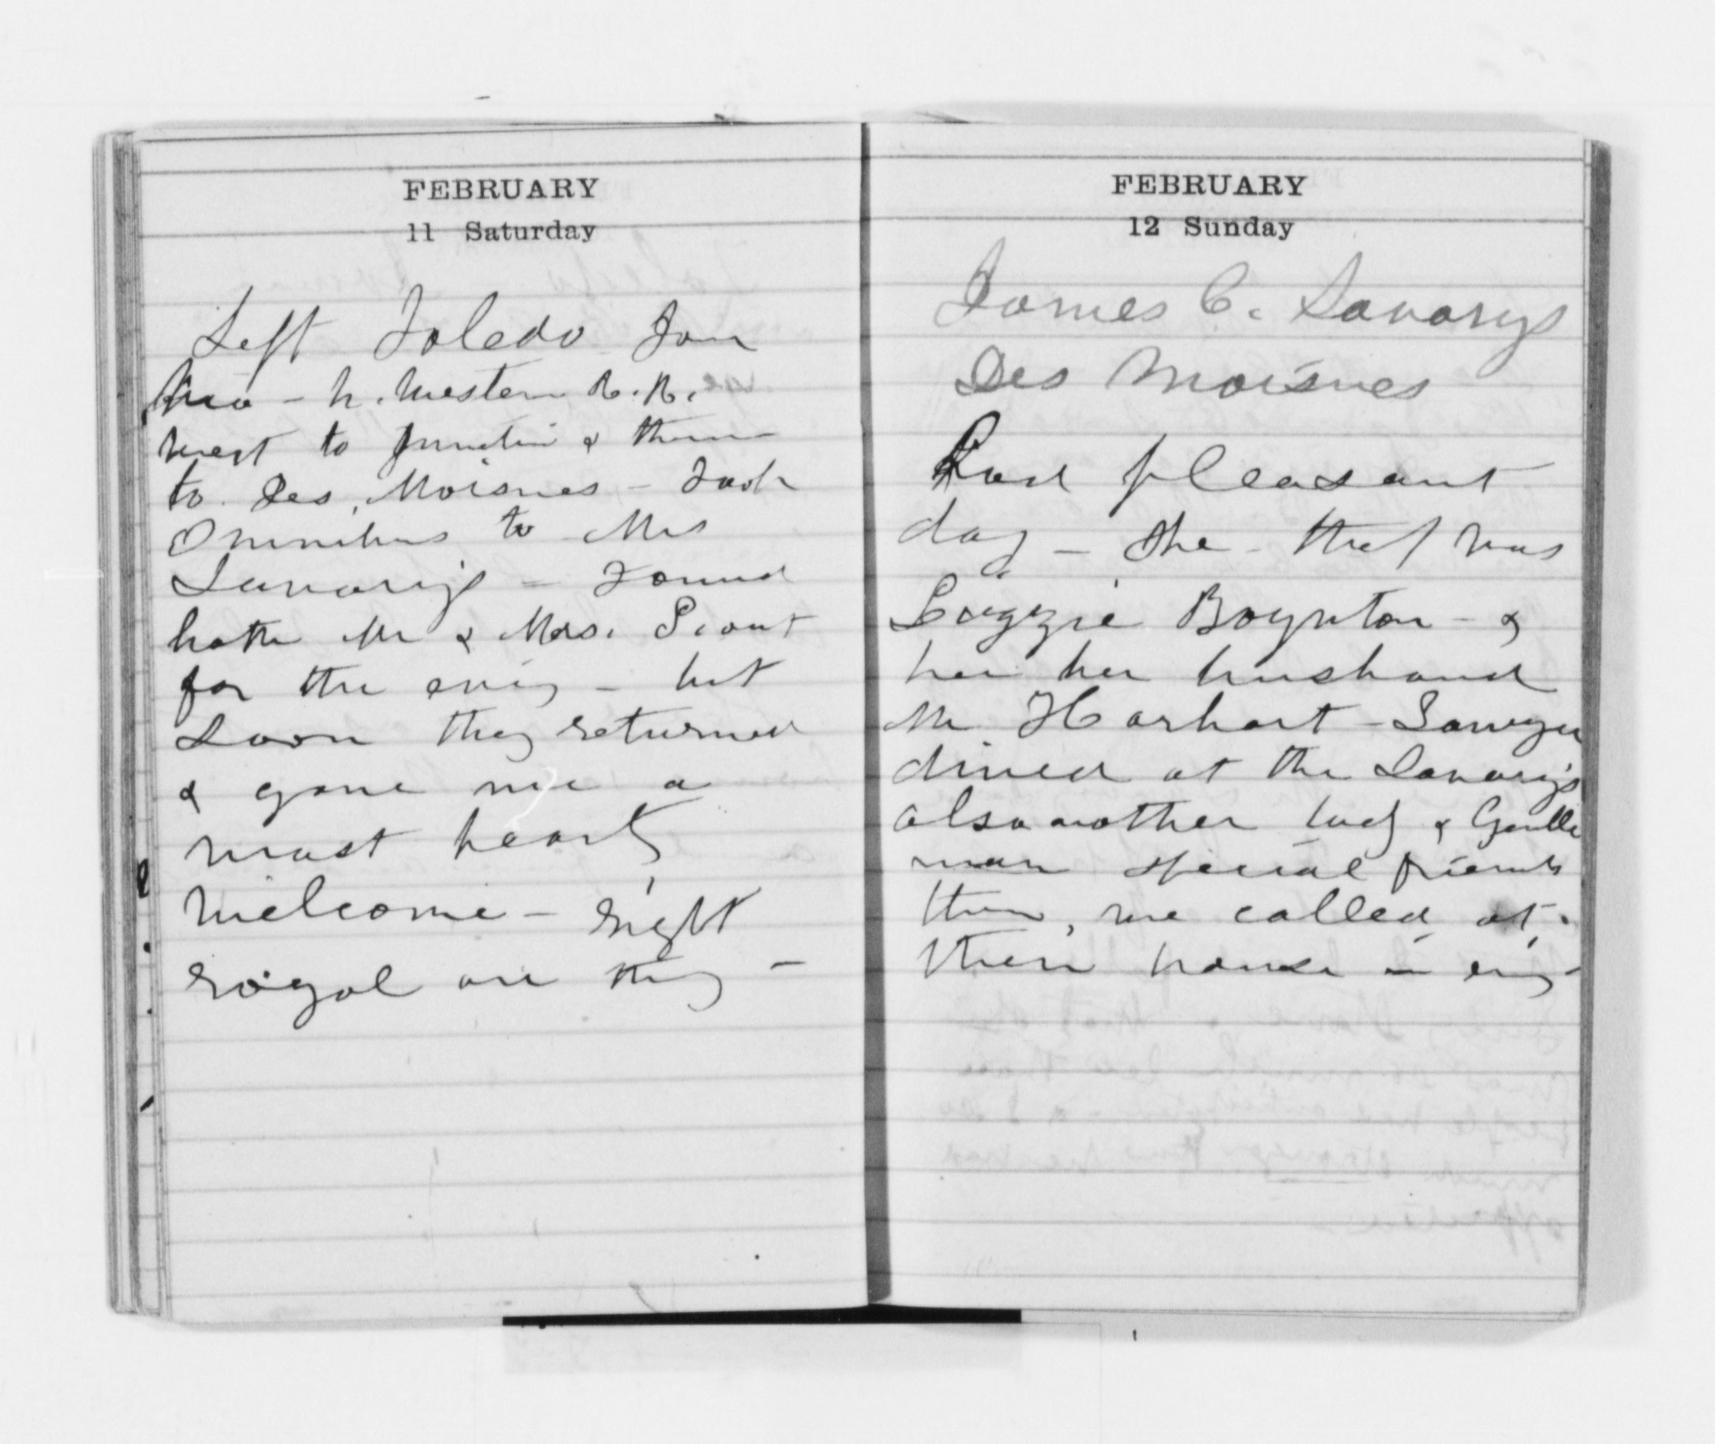 FEBRUARY
11 Saturday
Left Toledo Iowa
N. Western R. R.
west to Junction & thence
to Des Moisnes - Took
Omnibus to Mrs
Savarys - Found
both Mr & Mrs. S out
for the eve'g - but
soon they returned
& gave me a
most hearty
welcome - right
royal are they -
FEBRUARY
12 Sunday
James C. Savarys
Des Moisnes
Had pleasant
day - she that was
Lizzie Boynton - &
her her husband
Mr Harbart - Lawyer
dined at the Savarys
also another lady & Gentle
man special friends
then, we called at
their house in eve'g -